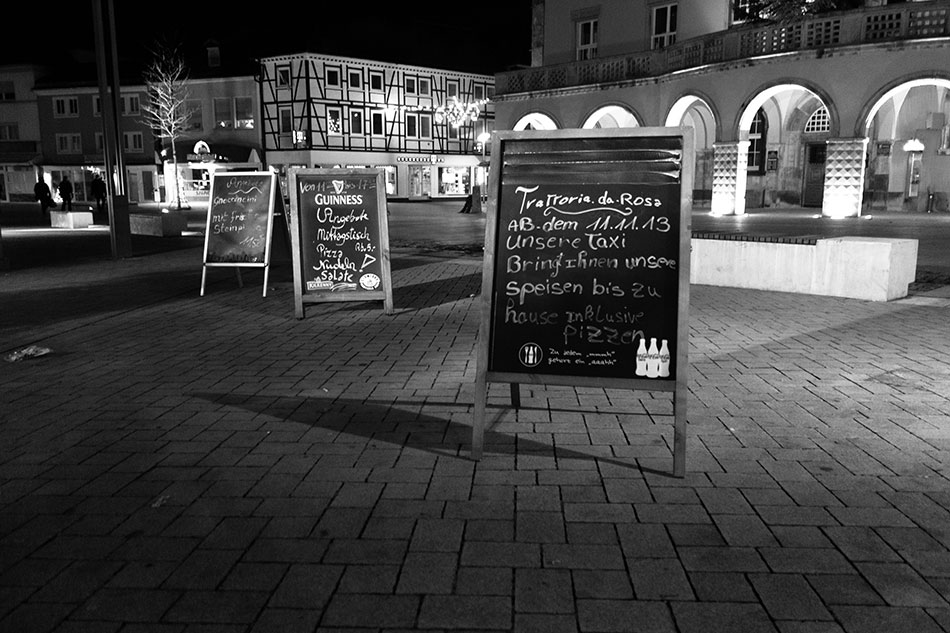 Gnocchini
mit fris
Stempi
Von 11-
GUINNESS
Angebote
Mittagstisch
Pizza
Nudeln
Salate
KILKENNY
Trattoria.da.Rosa
AB.dem 11.11.13
Unsere Taxi
Bringt ihnen unsere
speisen bis zu
hause inklusive
pizzen
Zu jedem „mmmh“
gehört ein „aaahh“